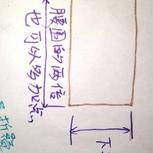 腰围的两倍
也可以多加点,
下